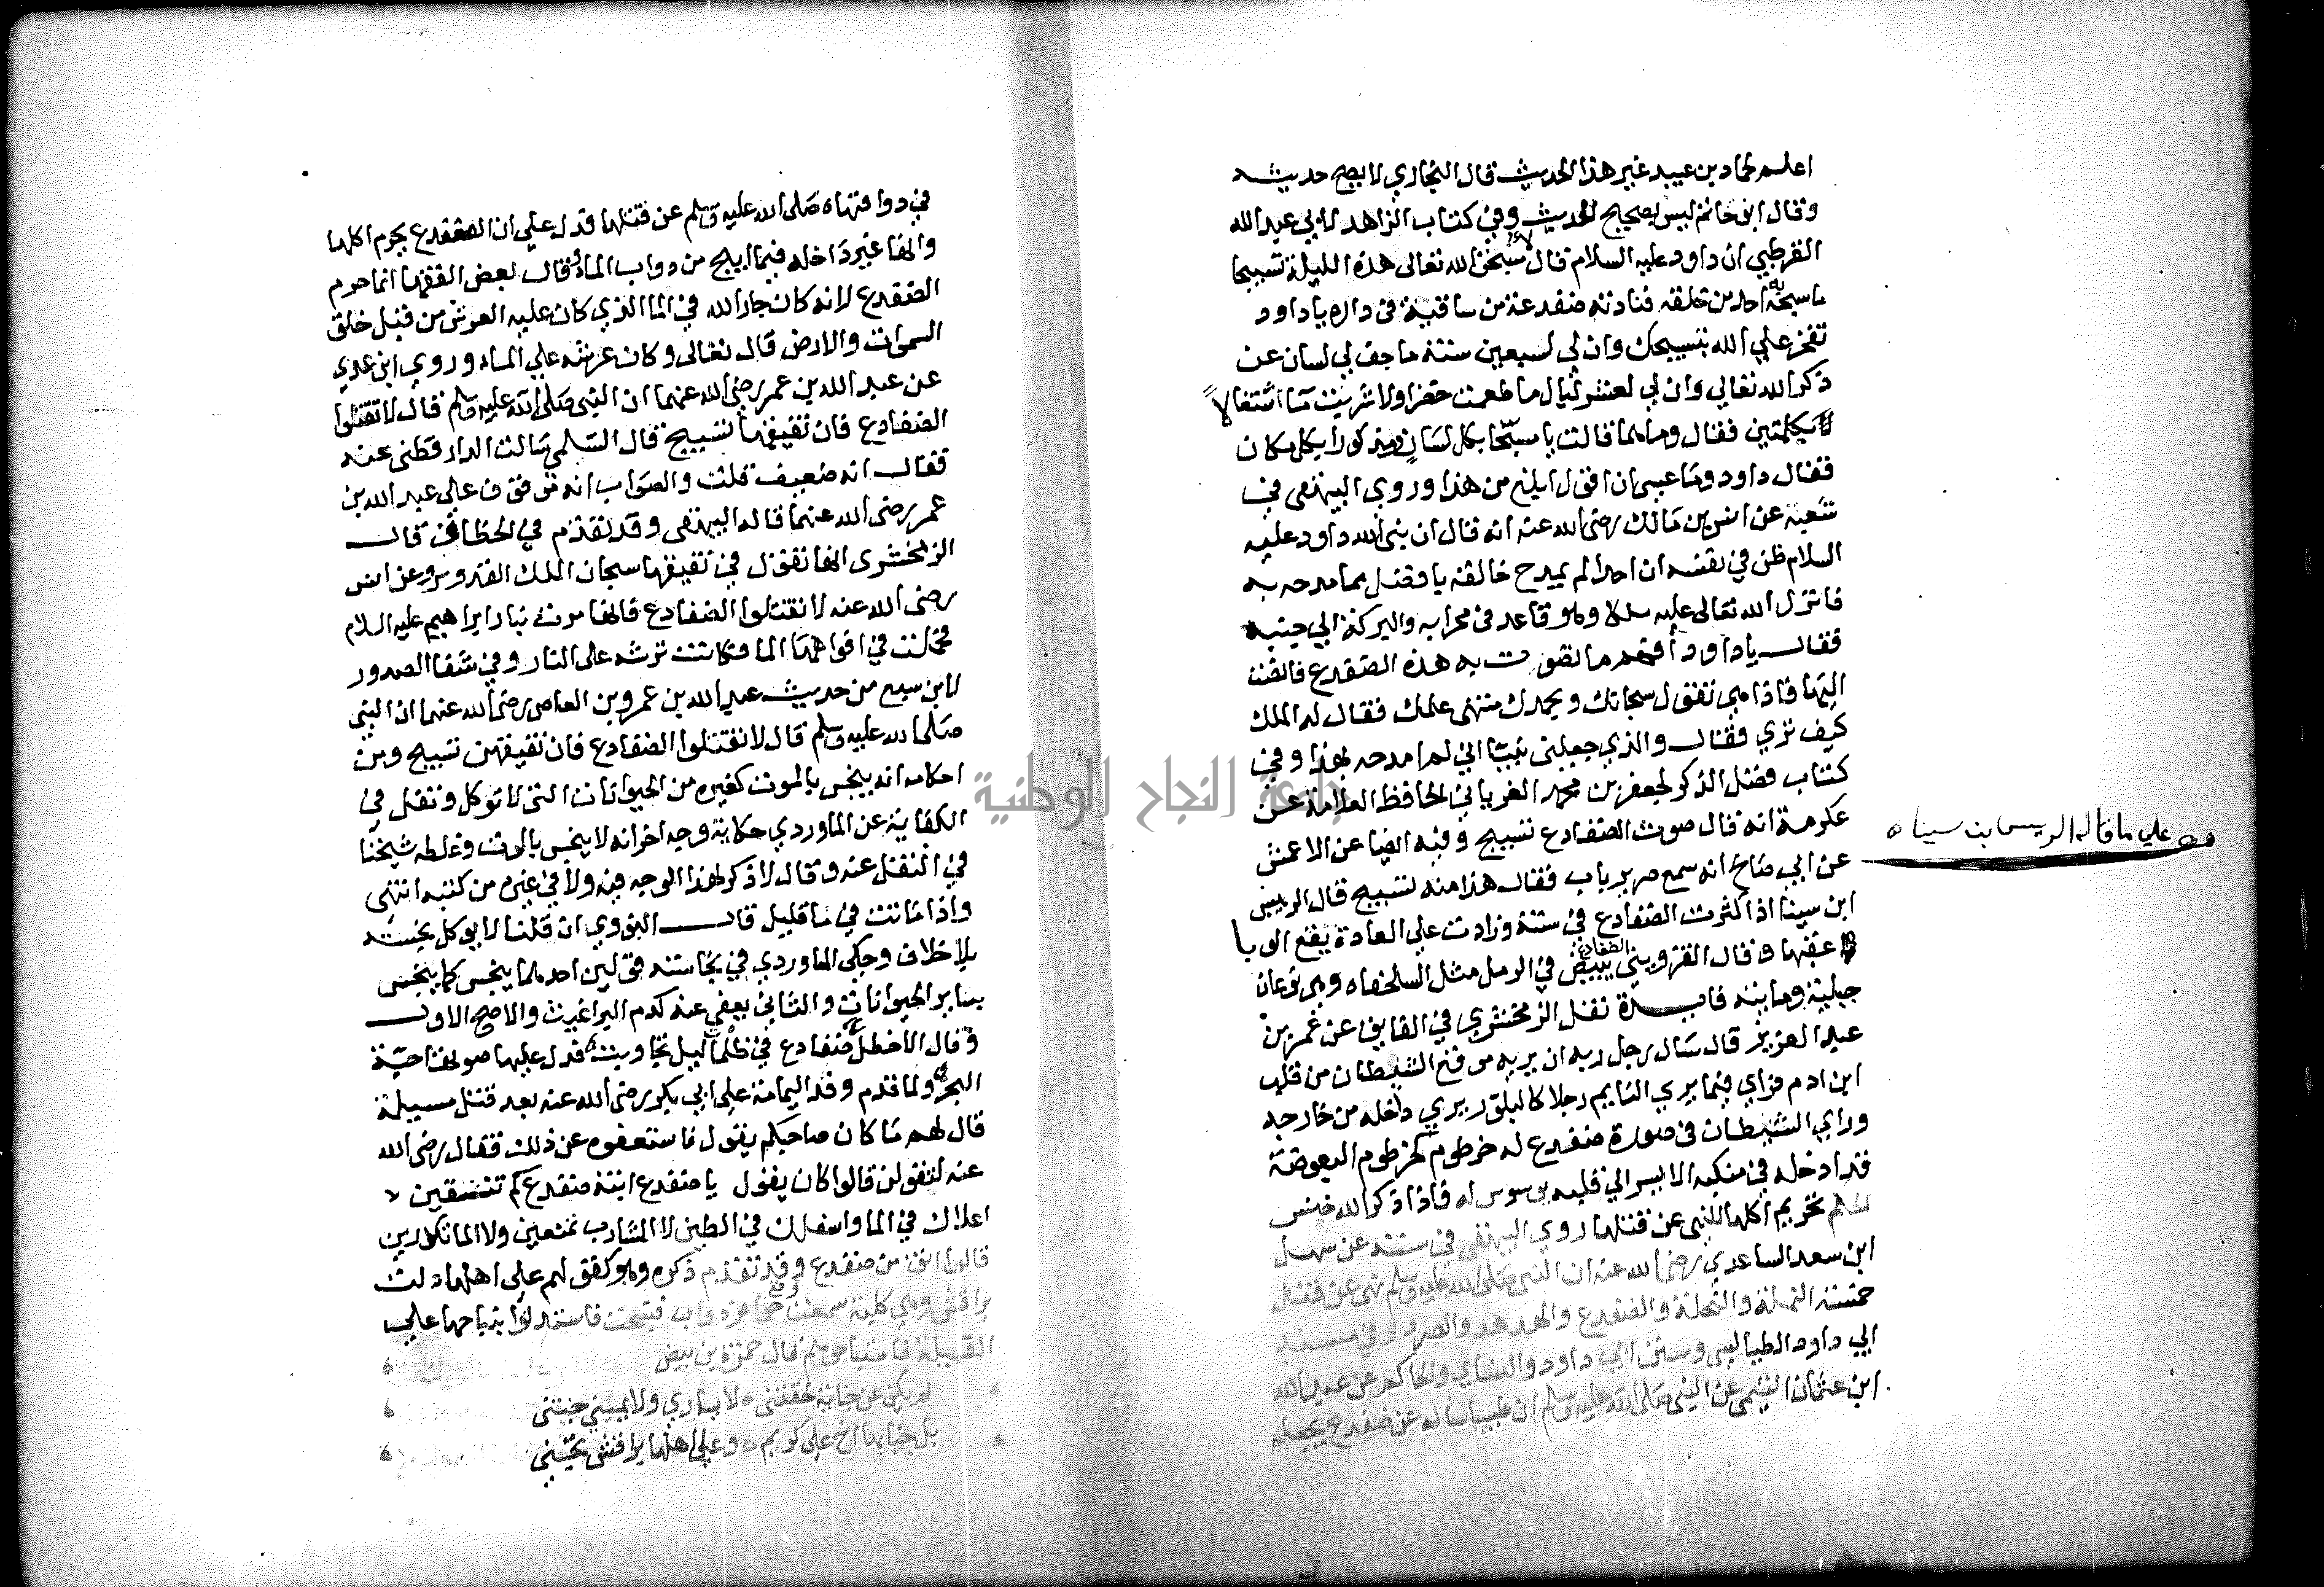 اعلم لحماد بن عبيد غير هذا الحديث قال البخاري لا يصح حديثه
وقال ابن حاتم ليس بصحيح الحديث وفي كتاب الزاهد لابي عبد الله
القرطبي ان داود عليه السلام قال لاسبحن الله تعالى هذه الليلة تسبيحا
ما سبحه به احد من خلقه فنادته ضفدعة من ساقية في داره ياداود
تفخر علي الله بتسبيحك وان لي لسبعين سنة ما جف لي لسان عن
ذكر الله تعالي وان لي لعشر ليال ما طعمت خضرا ولا شربت مآ اشتغالاً
بكلمتين فقال وما هما قالت يا مسبّحا بكل لسان ومذكورا بكل مكان
فقال داود وما عسى ان اقول ابلغ من هذا وروي البيهقي في
شعبه عن انس بن مالك رضي الله عنه انه قال ان نبي الله داود عليه
السلام ظن في نفسه ان احدا لم يمدح خالقه بافضل مما مدحه به
فانزل الله تعالى عليه ملكا وهو قاعد في محرابه والبركة الي جنبه
فقال ياداود أفهم ما تصوت به هذه الضفدع فانصت
اليها فاذا هي تقول سبحانك وبحمدك منتهى علمك فقال له الملك
كيف تري فقال والذي جعلني نبيّا اني لم امدحه بهذا وفي
كتاب فضل الذكر لجعفر بن محمد الفريابي الحافظ العلامة عن
عكرمة انه قال صوت الضفادع تسبيح وفيه ايضا عن الاعمش
عن ابي صالح انه سمع صرير باب فقال هذا منه تسبيح قال الرييس
ابن سينا اذا كثرت الضفادع في سنة وزادت علي العادة يقع الوبا
عقبها وقال القزويني الضفادع تبيض في الرمل مثل السلحفاه وهي نوعان
جبلية ومايية فايدة نقل الزمخشري في الفايق عن عمر بن
عبد العزيز قال سال رجل ربه ان يريه موقع الشيطان من قلب
ابن ادم فراي فيما يري النايم رجلا كالبلور يري داخله من خارجه
وراي الشيطان في صورة ضفدع له خرطوم كخرطوم البعوضة
قد ادخله في منكبه الايسر الي قلبه يوسوس له فاذا ذكر الله خنس
الحكم تحريم اكلها للنهي عن قتلها روي البيهقي في سننه عن سهل
ابن سعد الساعدي رضي الله عنه ان النبي صلى الله عليه وسلم نهى عن قتل
خمسة النملة والنحلة والضفدع والهدهد والصرد وفي مسند
ابي داود الطيالسي وسنن ابي داود والنساي والحاكم عن عبد الله
ابن عثمان التيمي عن النبي صلى الله عليه وسلم ان طبيبا ساله عن ضفدع يجعله
علي ما قاله الرييس ابن سيناه
في دوا فنهاه صلى الله عليه وسلم عن قتلها فدل علي ان الضفدع يحرم اكلها
وانها غير داخله فيما ابيح من دواب الماء وقال بعض الفقها انما حرم
الضفدع لانه كان جار الله في الما الذي كان عليه العرش من قبل خلق
السموات والارض قال تعالى وكان عرشه علي الماء وروي ابن عدي
عن عبد الله بن عمر رضي الله عنهما ان النبي صلى الله عليه وسلم قال لا تقتلوا
الضفادع فان نقيقها تسبيح قال السلمي سالت الدارقطني عنه
فقال انه ضعيف قلت والصواب انه موقوف علي عبد الله بن
عمر رضي الله عنهما قاله البيهقي وقد تقدم في الخطاف قال
الزمخشري انها تقول في نقيقها سبحان الملك القدوس وعن انس
رضي الله عنه لا تقتلوا الضفادع فانها مرت بنار ابراهيم عليه السلام
فحملت في افواهها الما فكانت ترشه على النار وفي شفا الصدور
لابن سبع من حديث عبد الله بن عمرو بن العاص رضي الله عنهما ان النبي
صلى الله عليه وسلم قال لا تقتلوا الضفادع فان نقيقهن تسبيح ومن
احكامه انه ينجس بالموت كغيره من الحيوانات التي لا توكل ونقل في
الكفاية عن الماوردي حكاية وجه اخر انه لا ينجس بالموت وغلطه شيخنا
في النقل عنه وقال لا ذكر لهذا الوجه فيه ولا في غيره من كتبه انتهى
واذا ماتت في ما قليل قال النووي ان قلنا لا يوكل نجسته
بلا خلاف وحكى الماوردي في نجاسته قولين احدهما ينجس كما ينجس
بساير الحيوانات والثاني يعفي عنه كدم البراغيث والاصح الاول
وقال الاخطل ضفادع في ظلما ليل تجاوبت فدل عليها صوتها حيّة
البحر ولما قدم وفد اليمامة على ابي بكر رضي الله عنه بعد قتل مسيلمة
قال لهم ما كان صاحبكم يقول فاستعفوه عن ذلك فقال رضي الله
عنه لتقولن قالوا كان يقول يا ضفدع ابنة ضفدع كم تنقنقين
اعلاك في الما واسفلك في الطين لا الشارب تمنعين ولا الما تكدرين
قالوا انق من ضفدع وقد تقدم ذكره وهو كقولهم علي اهلها دلت
براقش وهي كلبة سمعت وقع حوافر دواب فنبحت فاستدلوا بنباحها علي
القبيلة فاستباحوهم قال حمزة بن بيض
لم يكن عن جناية لحقتني لا يساري ولا يميني جنتني
بل جناها اخ علي كريم وعلي اهلها براقش تجني
جامعة النجاح الوطنية